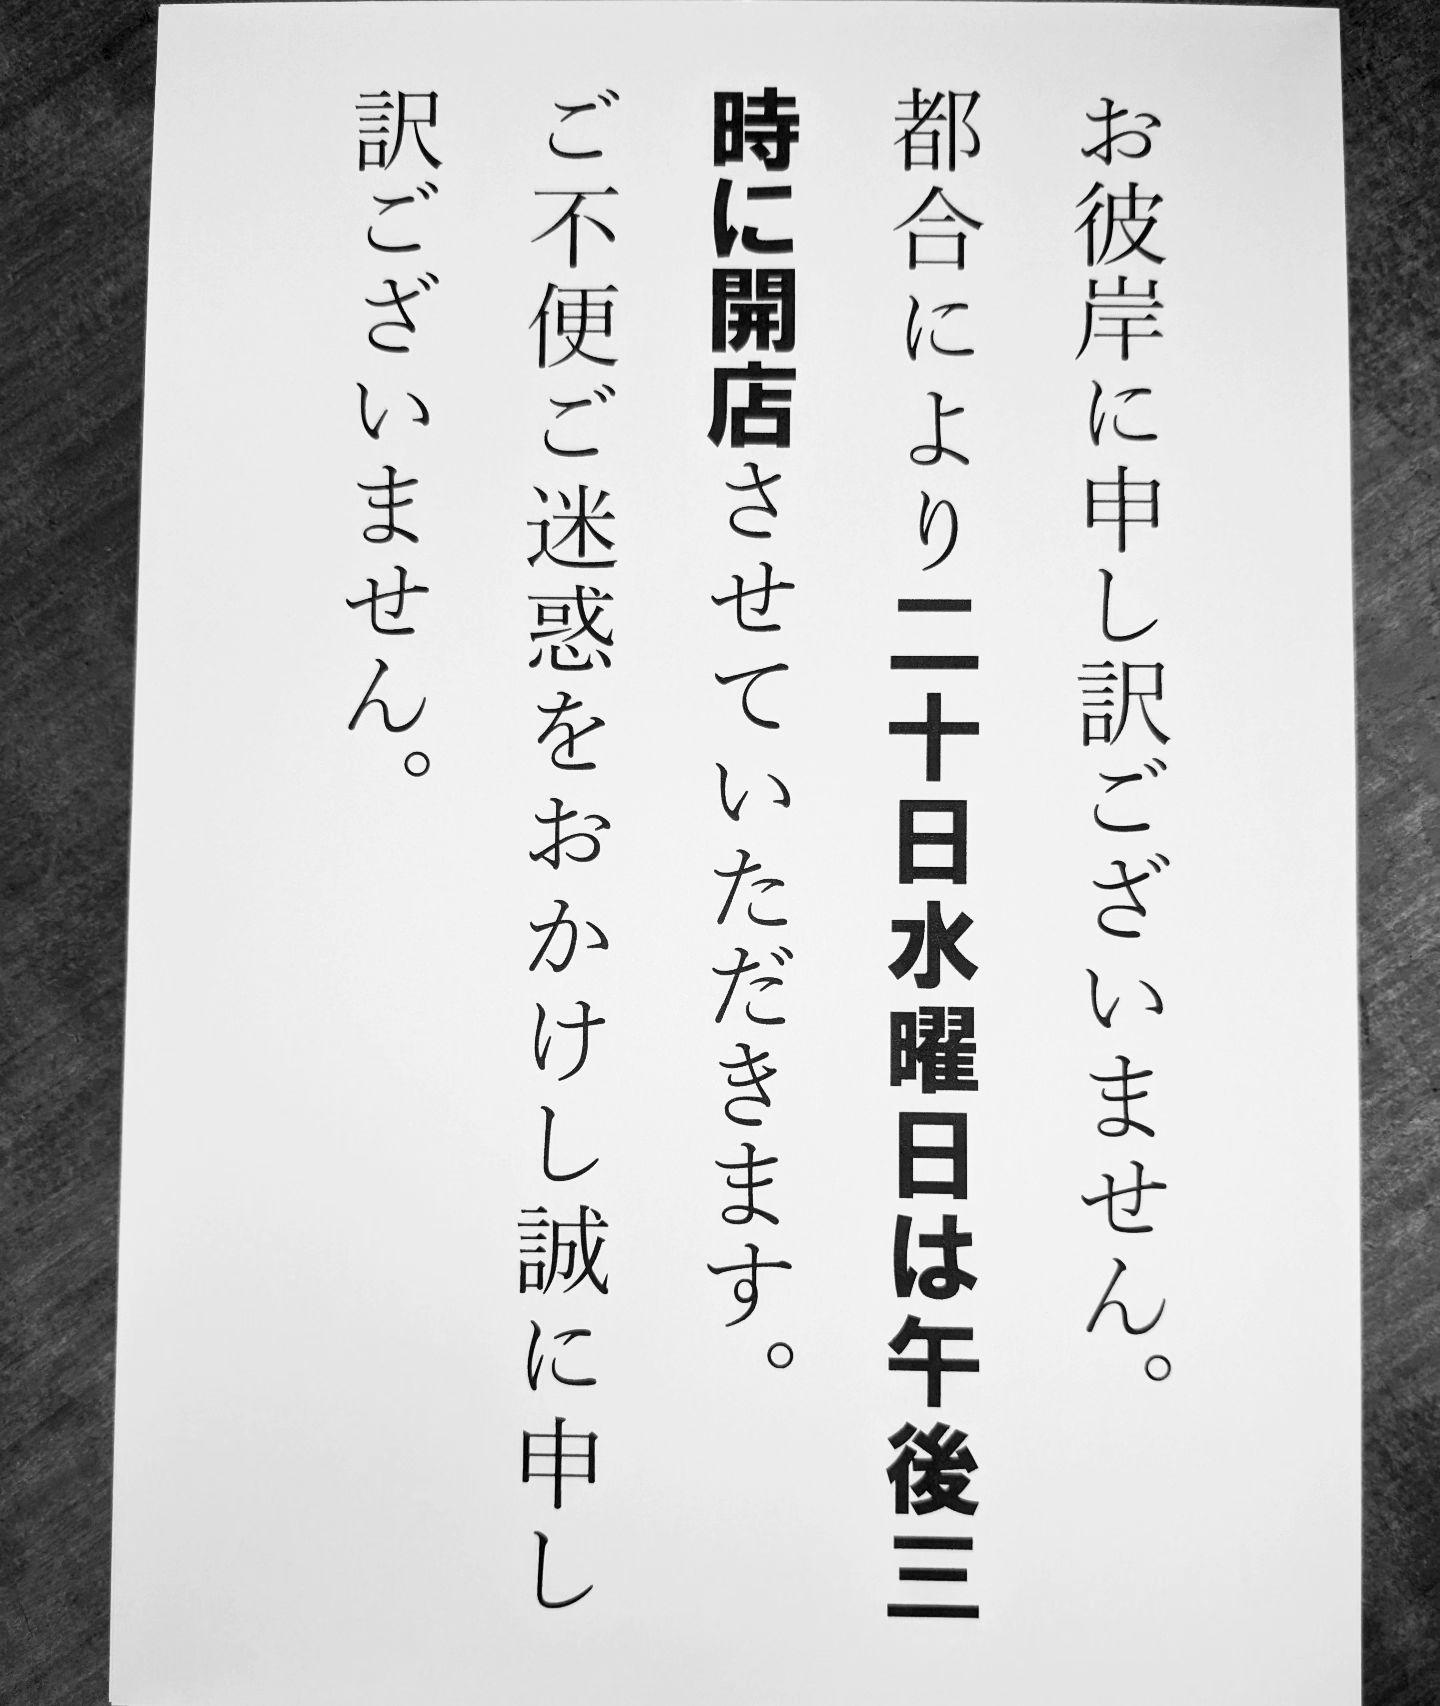 お彼岸に申し訳ございません。
都合により二十日水曜日は午後三
時に開店させていただきます。
ご不便ご迷惑をおかけし誠に申し
訳ございません。